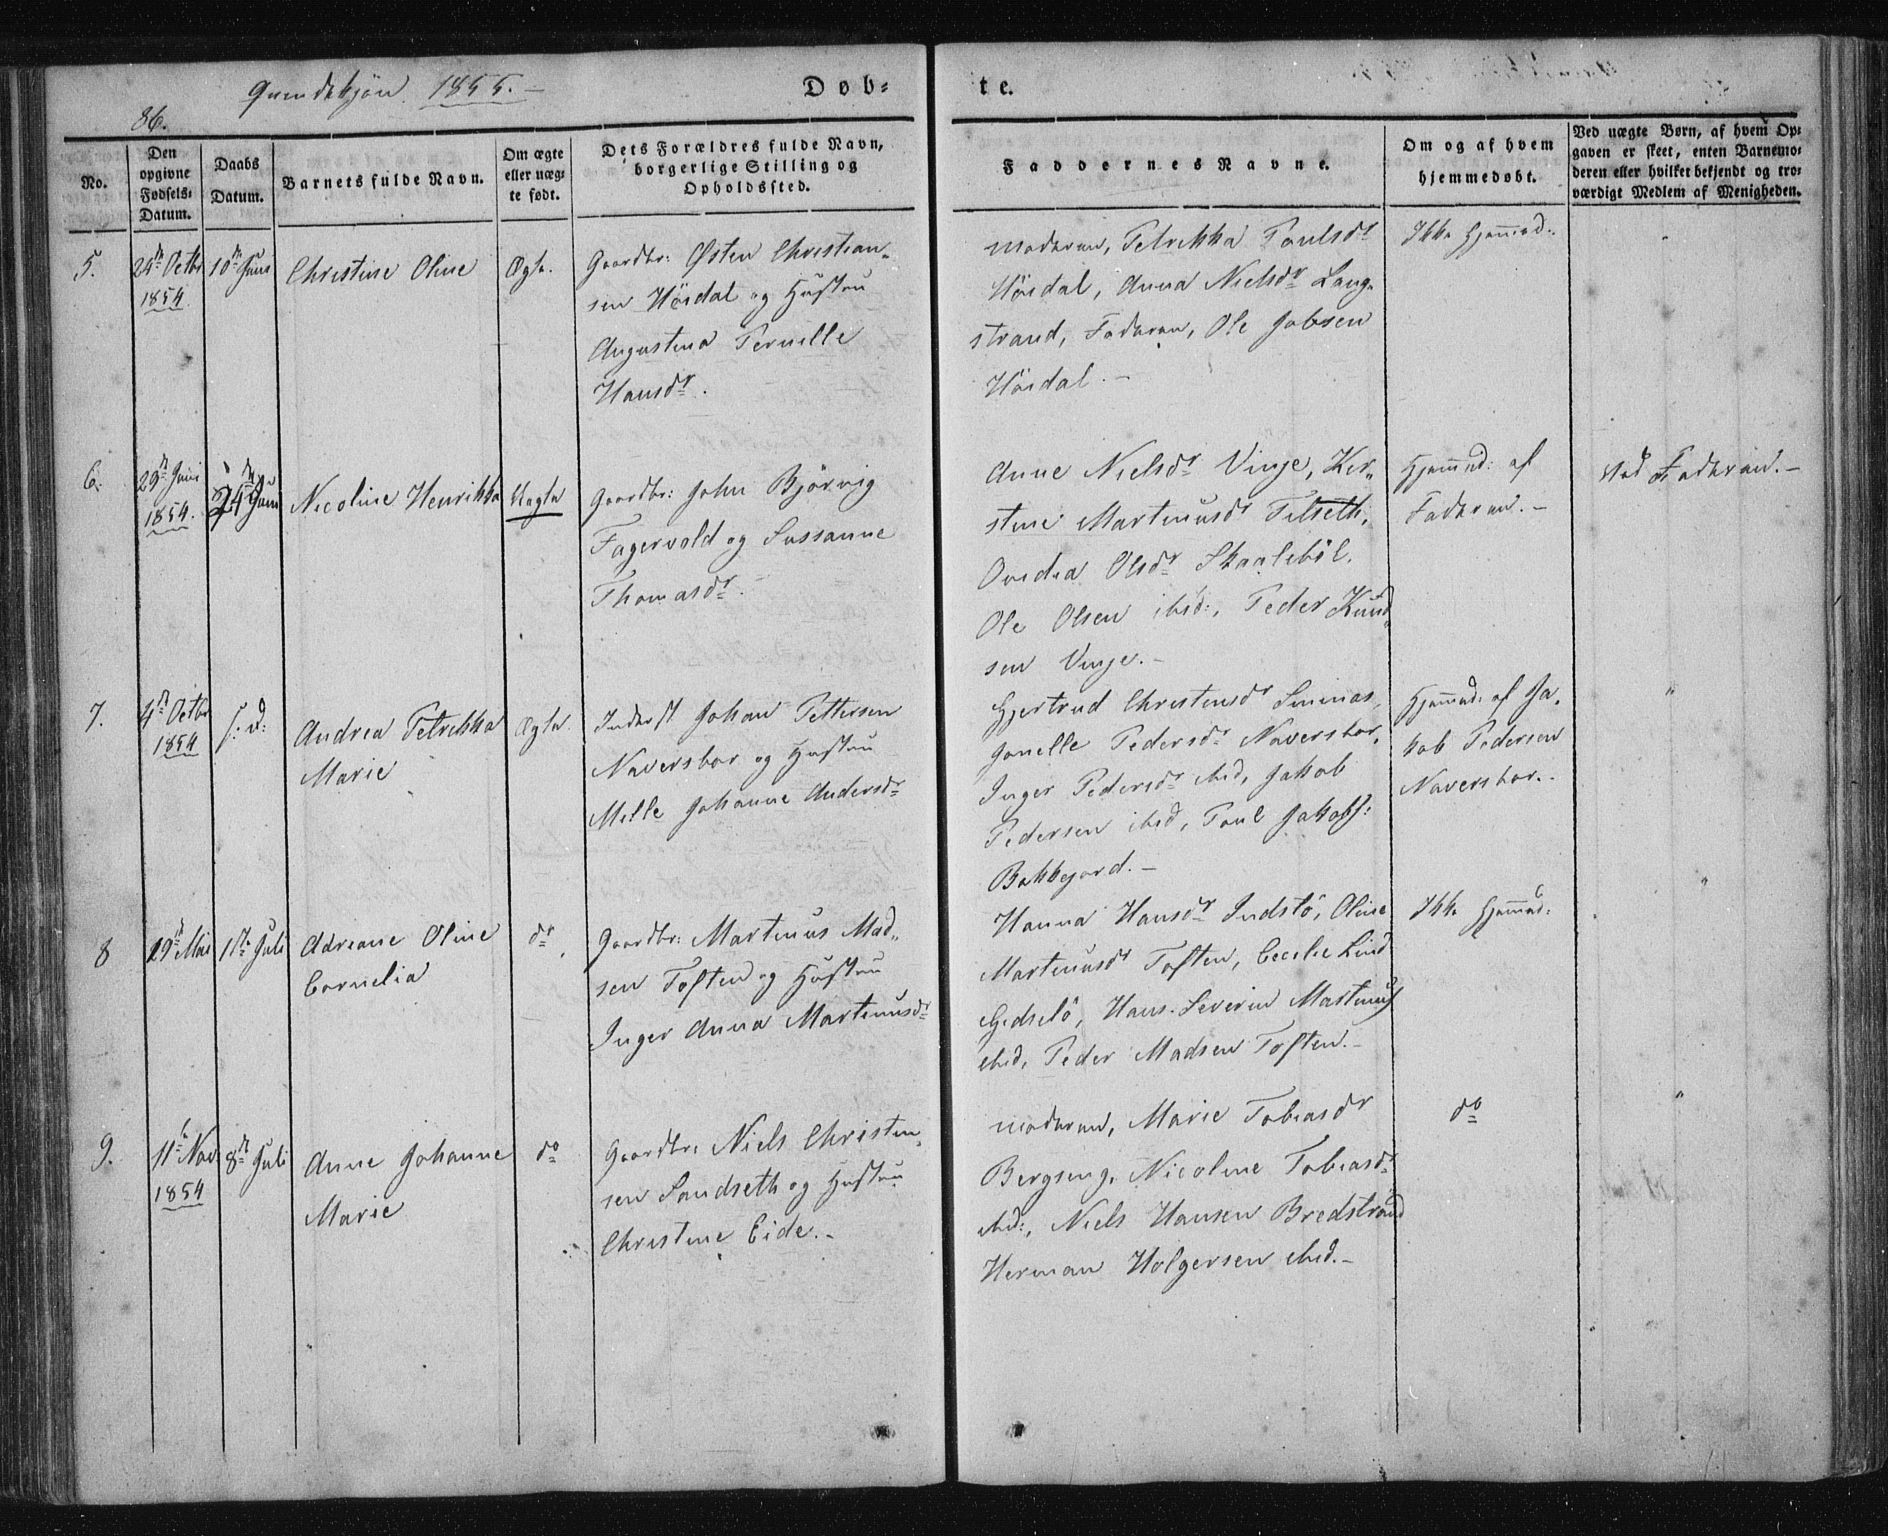 86.
Qvindekjön 1855.
Døb-
te.
No.
Den opgivne Fødsels-Datum.
Daabs Datum.
Barnets fulde Navn.
Om ægte eller uæg-te født.
Dets Forældres fulde Navn, borgerlige Stilling og Opholdssted.
Faddernes Navne.
Om og af hvem hjemmedøbt.
Ved uægte Børn, af hvem Op-gaven er skeet, enten Barnemo-deren eller hvilket bekjendt og tro-værdigt Medlem af Menigheden.
5.
24de Octbr
1854
10de Juni
Christine Oline
Ægte.
Gaardbr: Østen Christian-
sen Höidal og Hustru
Augustina Pernille
Hansdr.
Moderen, Petrikka Poulsdr
Höidal, Anna Nielsdr Lang-
strand, Faderen, Ole Jobsen
Höidal.
Ikke Hjemmed:
6.
29de Juni
1854.
24de Juni
Nicoline Henrikka
Uægte
Gaardbr: John Björvig
Fagervold og Sussanne
Thomasdr.
Anne Nielsdr Vinje, Ker-
stine Martinusdr Tilseth,
Ovidia Olsdr Skaaleböl.
Ole Olsen ibid:, Peder Knud-
sen Vinje.
Hjemmed: af
Faderen.
Ved Faderen.
7.
4de Octbr
1854
s: d:
Andrea Petrikka
Marie
Ægte.
Inderst Johan Pettersen
Naversbor og Hustru
Mille Johanne Andersdr
Gjertrud Christensdr Sinnias,
Jonelle Pedersdr Naversbor,
Inger Pedersdr ibid, Jakob
Pedersen ibid, Poul Jakobs:
Bakkegard.
Hjemmed: af Ja-
kob Pedersen
Naversbor.
"
8
29de Mai
1ste Juli
Adriane Oline
Cornelia
do
Gaardbr: Martinus Mad-
sen Toften og Hustru
Inger Anna Martinusdr
Hanna Hansdr Indslö, Oline
Martinusdr Toften, Cecilie Lind
Gedselö, Hans Severin Martinus
ibid, Peder Madsen Toften.
Ikke Hjemmed:
"
9.
11te Nov
1854
8de Juli
Anne Johanne
Marie
do
Gaardbr: Niels Christen-
sen Sandseth og Hustru
Christine Eide.
Moderen, Marie Tobiasdr
Bergseng, Nicoline Tobiasdr
ibid:, Niels Hansen Bredstrand
Herman Holgersen ibid.
do
"